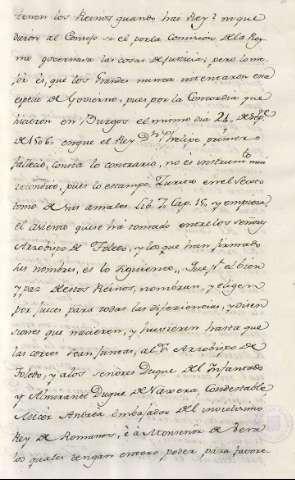 tienen los Reinos quando hai Rey? ni que
dieron al Consejo si el por la Comision de la Rey
no governava las cosas de Justicia; pero lo me
jor és, que los Grandes nunca intentaron esa
especie de Govierno, pues por la Concordia que
hicieron en Burgos el mismo dia 24 de Sep.re
de 1506 en que el Rey Phelipe primero
falleció, consta lo contrario, no és instrumto mui
recondito, pues lo estampo Zurita en el Secundo
tomo de sus anales Lib. 7 Cap. 15, y empieza
el asiento que se ha tomado entre los señores
Arzobispo de Toledo, y los que han firmado
sus nombres, es lo siguiente, Que p.r el bien
y paz de estos Reinos, nombran, y eligen
por Juez para todas las diferiencias, y disen
siones que nacieren, y huvieren hasta que
las cortes sean juntas, al S.r Arzobispo de
Toledo, y a los señores Duque del Infantado
y Almirante Duque de Naxera, Condestable
Micer Andrea embajador del
Rey de Romanos, é á Monseñor de Vera
los quales tengan entero poder, para favore-